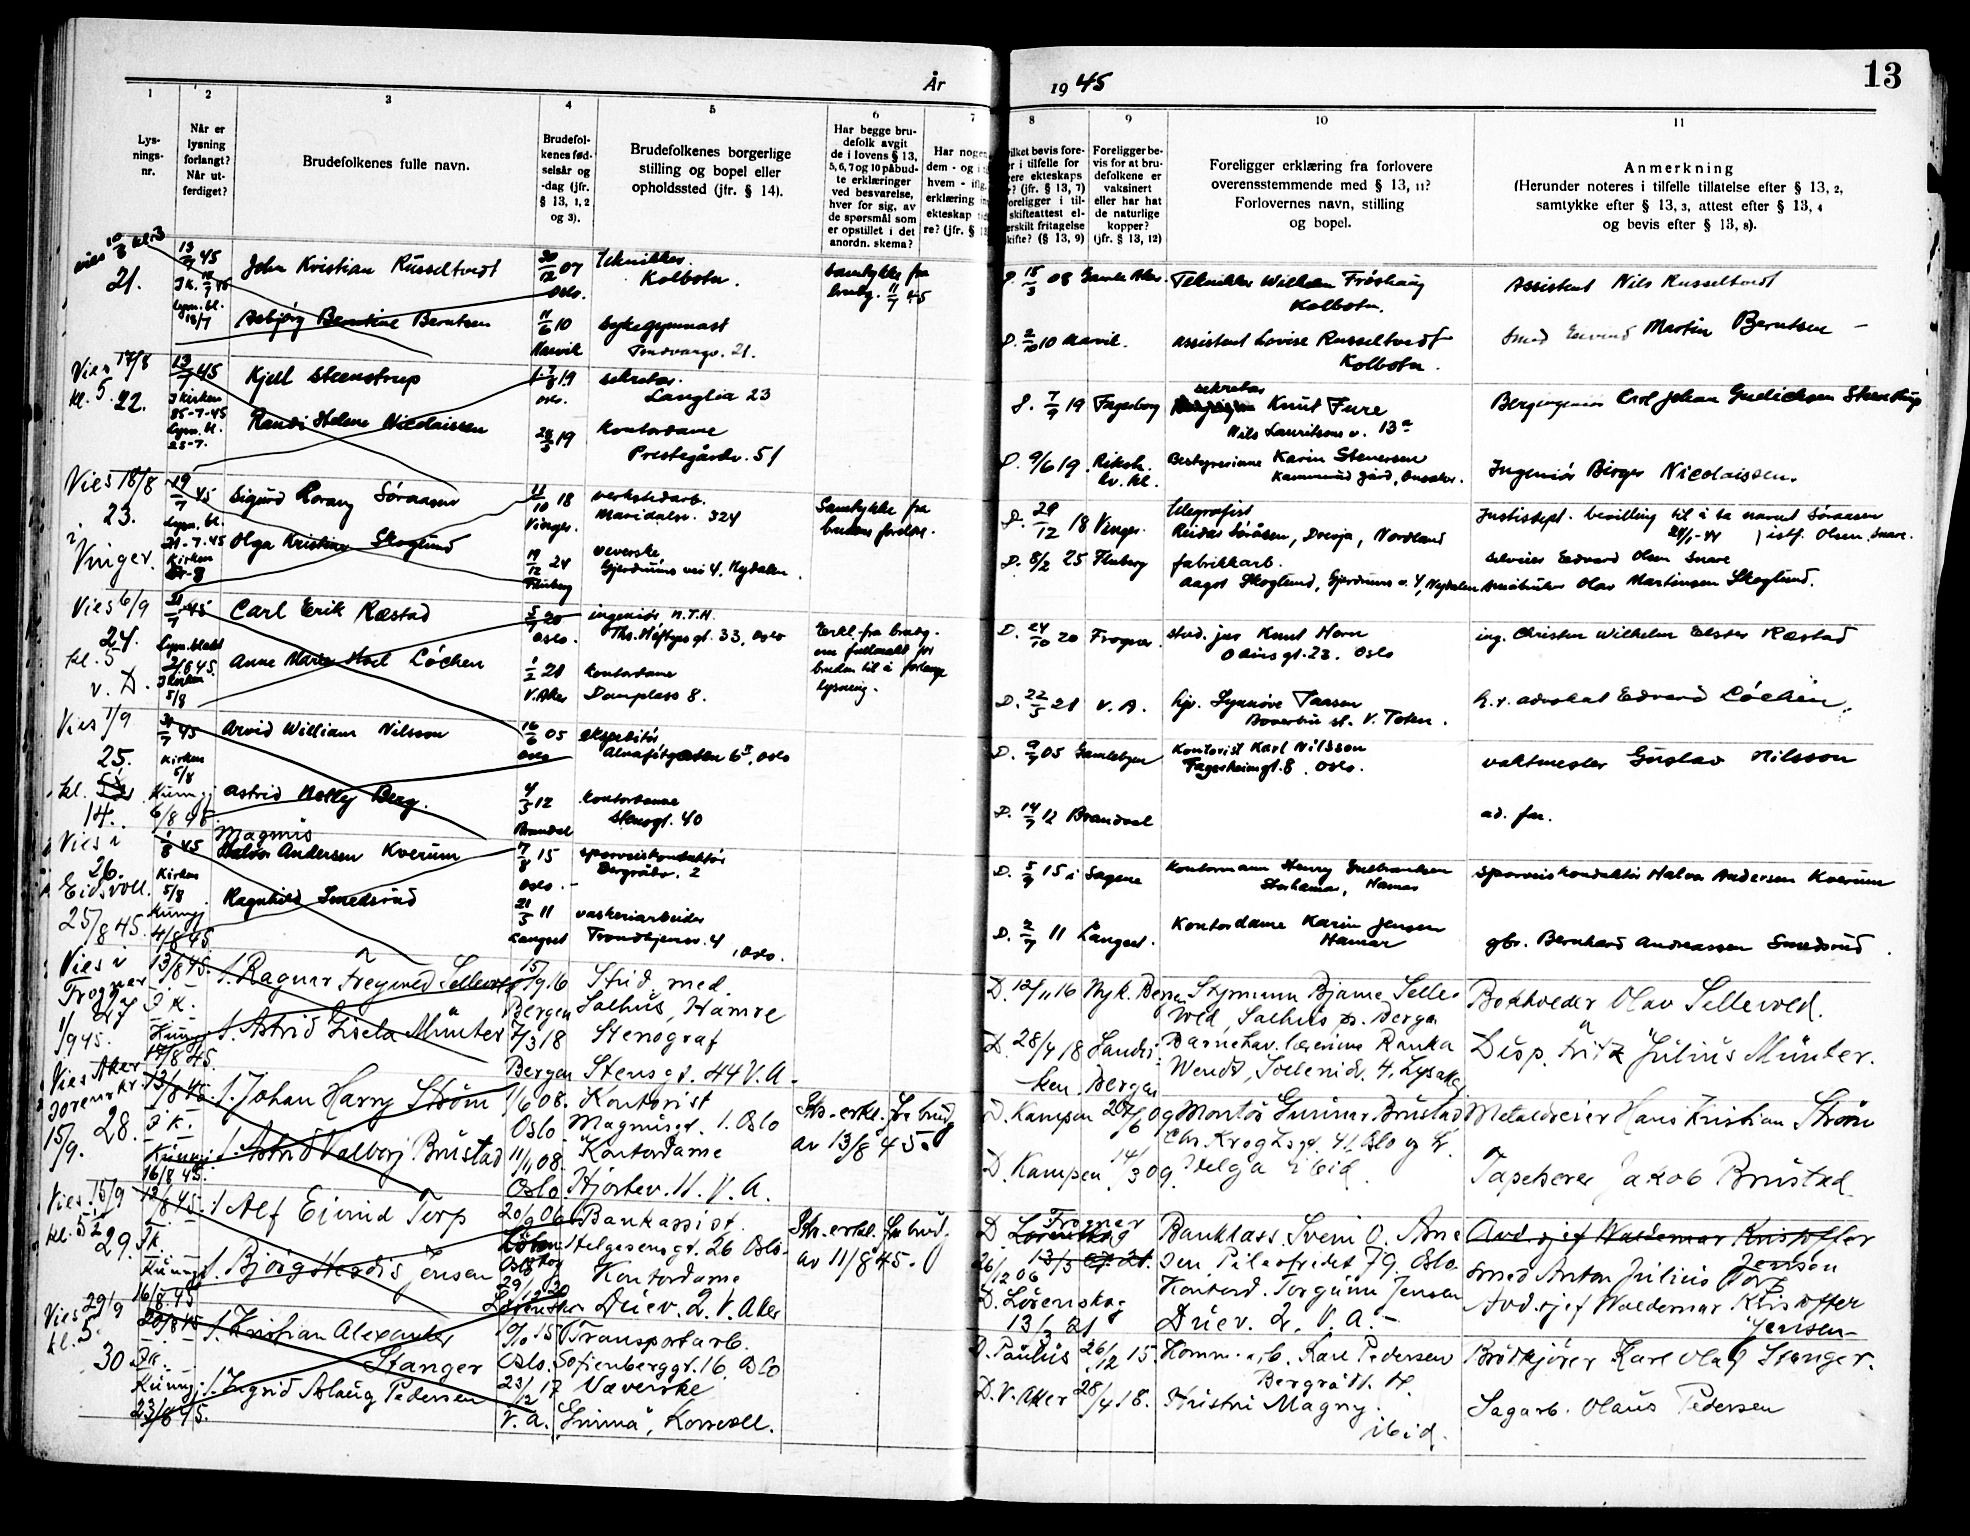 År 1945
13
1 2 3 4 5 6 7 8 9 10 11
Lys-
nings-
nr.
Når er
lysning
forlangt?
Når ut-
ferdiget?
Brudefolkenes fulle navn.
Brudefol-
kenes fød-
selsår og
-dag (jfr.
§ 13, 1, 2
og 3).
Brudefolkenes borgerlige
stilling og bopel eller
opholdssted (jfr. § 14).
Har begge bru-
defolk avgit
de i lovens § 13,
5, 6, 7 og 10 påbud-
te erklæringer
ved besvarelse,
hver for sig, av
de spørsmål som
er opstillet i det
anordn. skema?
Har nogen
dem - og i
hvem - ifg.
erklæring in
ekteskap tid
re? (jfr. § 1
ilket bevis fore-
r i tilfelle for
ere ekteskaps
r? (jfr. § 13, 7)
oreligger i til-
skifteattest el-
erskilt fritagelse
kifte? (§ 13, 9)
Foreligger be-
vis for at bru-
defolkene er
vaksinert
eller har hat
de naturlige
kopper?
(jfr. § 13, 12)
Foreligger erklæring fra forlovere
overensstemmende med § 13, 11?
Forlovernes navn, stilling
og bopel.
Anmerkning
(Herunder noteres i tilfelle tillatelse efter § 13, 2,
samtykke efter § 13, 3, attest efter § 13, 4
og bevis efter § 13, 8).
21.
13/7 45
John Kristian Russeltvedt
30/12 07
Oslo.
Tekniker
Kolbotn.
Samtykke fra
brudg. 11/7 45
D. 15/3 08 Gamle Aker
Tekniker Wilhelm Frøshaug
Kolbotn.
Assistent Nils Russeltvedt
Asbjørg Berntine Berntsen
11/6 10
Narvik
Sykegymnast
Tindvangv. 21.
D. 2/10 10 Narvik.
Assistent Lovise Russeltvedt
Kolbotn.
Smed Eivind Martin Berntsen
Vies 17/8
kl. 5
22.
13/7 45
I kirken
25-7-45
Lysn. bl.
25-7.
Kjell Steenstrup
Oslo.
Sekretær
Langlia 23
D. 7/9 19 Fagerborg
sekretær
Knut Fure
Nils Lauritsons v. 13a
Carl Johan Gudichsen Steenstrup
Randi Helene Nicolaissen
28/5 19
Kontordame
Prestegårdv. 51
D. 9/6 19. Riksh.
kv. kl.
Bestyrerinne Karin Stenersen
Ingeniør Birger Nicolaissen.
Vies 18/8
23.
i
Vinger.
19/7 45
Lysn. bl.
21-7-45
Kirken
Sigurd Søraasen
11/10 18
Vinger.
verkstedarb.
Maridalsv. 324
Samtykke fra
brudens foreldre.
D. 29/12 18 Vinger
telegrafist
Reidar Søråsen, Dverja, Nordland
Justisdept. bevilling til å ta navnet Søraasen
24/1-44 istf. Olsen Snare.
Olga Kristine Skoglund
19/12 24
Fluberg
veverske
Gjerdrums vei 4, Nydalen.
D. 8/2 25 Fluberg
fabrikkarb.
Aagot Skoglund, Gjerdrums v. 4, Nydalen
Edvard Olsen Snare
Olav Martinsen Skoglund.
Vies 6/9
24.
kl. 5
v. D.
31/7 45
Lysn.blad
2/8 45.
I kirken
5/8
Carl Erik Ræstad
5/9 20
Oslo.
ingeniør N.T.H.
Ths. Heftyes gt. 33, Oslo
Erkl. fra brudg.
om fullmakt for
bruden til å forlange
lysning.
D. 24/10 20 Frogner
stud. jur Knut Horn
Odins gt. 23. Oslo
ing. Christen Wilhelm Elster Ræstad
Anne Marie Hoel Løchen
1/2 21
V. Aker
Kontordame
Damplass 8.
D. 22/5 21 V. A.
hjv. Synnøve Taasen
V. Toten.
h.r. advokat Edvard Løchen.
Vies 1/9
25.
kl.
14.
31/7 45
Kirken
5/8
Kunng.
6/8 45.
Arvid William Nilsson
16/6 05
Oslo
ekspeditør
Alnafetgaten 6 II, Oslo
D. 9/7 05 Gamlebyen
Kontorist Karl Nilsson
Fagerheimgt. 8. Oslo.
vaktmester Gustav Nilsson
Astrid Nelly Berg.
4/5 12
Brandval
Kontordame
Stensgt. 40
D. 14/7 12 Brandval
ad. far.
Vies i
26.
Eidsvoll.
25/8 45.
1/8 45
Kirken
5/8
Kunng.
4/8 45.
Magnus
Halvor Andersen Kverum
7/8 15
Oslo.
sporveiskonduktør
Bergrådv. 2
D. 5/9 15 i Sagene
Kontormann Henry Gulbransen
Storhamar, Hamar
Sporveiskonduktør Halvor Andersen Kverum
Ragnhild Smedsrud
21/5 11
Langset
vaskeriarbeider
Trondhjemsv. 4, Oslo.
D. 2/7 11 Langset.
Kontordame Karin Jensen
Hamar
gbr. Bernhard Andreassen Smedsrud.
Vies i
Frogner
27
1/9 45.
13/8 45.
I K.
Kunng.
1. Ragnar Fregvald Sellevold
15/9 16
Bergen
Stud. med.
Salhus, Hamre
D. 12/11 16 Nyk. Bergen
Styrmann Bjarne Selle-
vold, Salhus p. Bergen
Bokholder Olav Sellevold.
1. Astrid Gisela Münter
7/3 18
Bergen
Stenograf
Stensgt. 44 V. A.
D. 28/4 18 Sandvi-
ken, Bergen
Wendt, Sollenidv. 4, Lysaker
Disp. Fritz Julius Münter.
Vies Aker
kr.
15/9.
28.
13/8 45.
I K.
Kunng.
16/8 45.
1. Johan Harry Strøm
1/6 08.
Oslo
Kontorist
Magnusgt. 1. Oslo
Skr. erkl. fra brudg.
av 13/8 45.
D. Kampen
Montør Gunnar Brustad
Chr. Kroghsgt. 41 Oslo
Metaldreier Hans Kristian Strøm
1. Astrid Valborg Brustad
11/11 08.
Oslo
Kontordame
Hjortev. 11. V. A.
D. Kampen 14/3 09.
Helga ibid.
Tapetserer Jakob Brustad
Vies 15/9
kl. 5½
29.
13/8 45.
I K
Kunng.
16/8 45
1. Alf Eivind Torp
20/9 06
Oslo
Bankassist.
Helgesensgt. 26 Oslo.
Skr. erkl. fra brud.
av 11/8 45.
D Frogner
26/12 06
Bankass. Svein O. Arne
sen Pilestredet 79. Oslo
Avd. sjef Waldemar Kristoffer
Jensen
Smed Anton Julius Torp
1. Bjørg Herdis Jensen
29/12 20
Lørenskog
Kontordame
Duev. 2. V. Aker
D. Lørenskog
13/3 21
Kontord. Torgunn Jensen
Duev. 2. V. A.
Avd. sjef Waldemar Kristoffer
Jensen
Vies 29/9
kl. 5.
30
20/8 45
I K.
Kunng.
23/8 45.
1. Kristian Alexander
Stanger
10/10 15
Oslo.
Transportarb.
Sofienberggt. 16, Oslo
D. Paulus 26/12 15.
Komm. arb. Kåre Pedersen
Bergrådv. 11.
Brødkjører Karl Olaf Stanger.
1. Ingrid Aslaug Pedersen
23/12 17
V. A.
Væverske
"Grima", Korsvoll.
D. V. Aker 28/4 18.
Kristin Magny.
ibid.
Sagarb. Olaus Pedersen